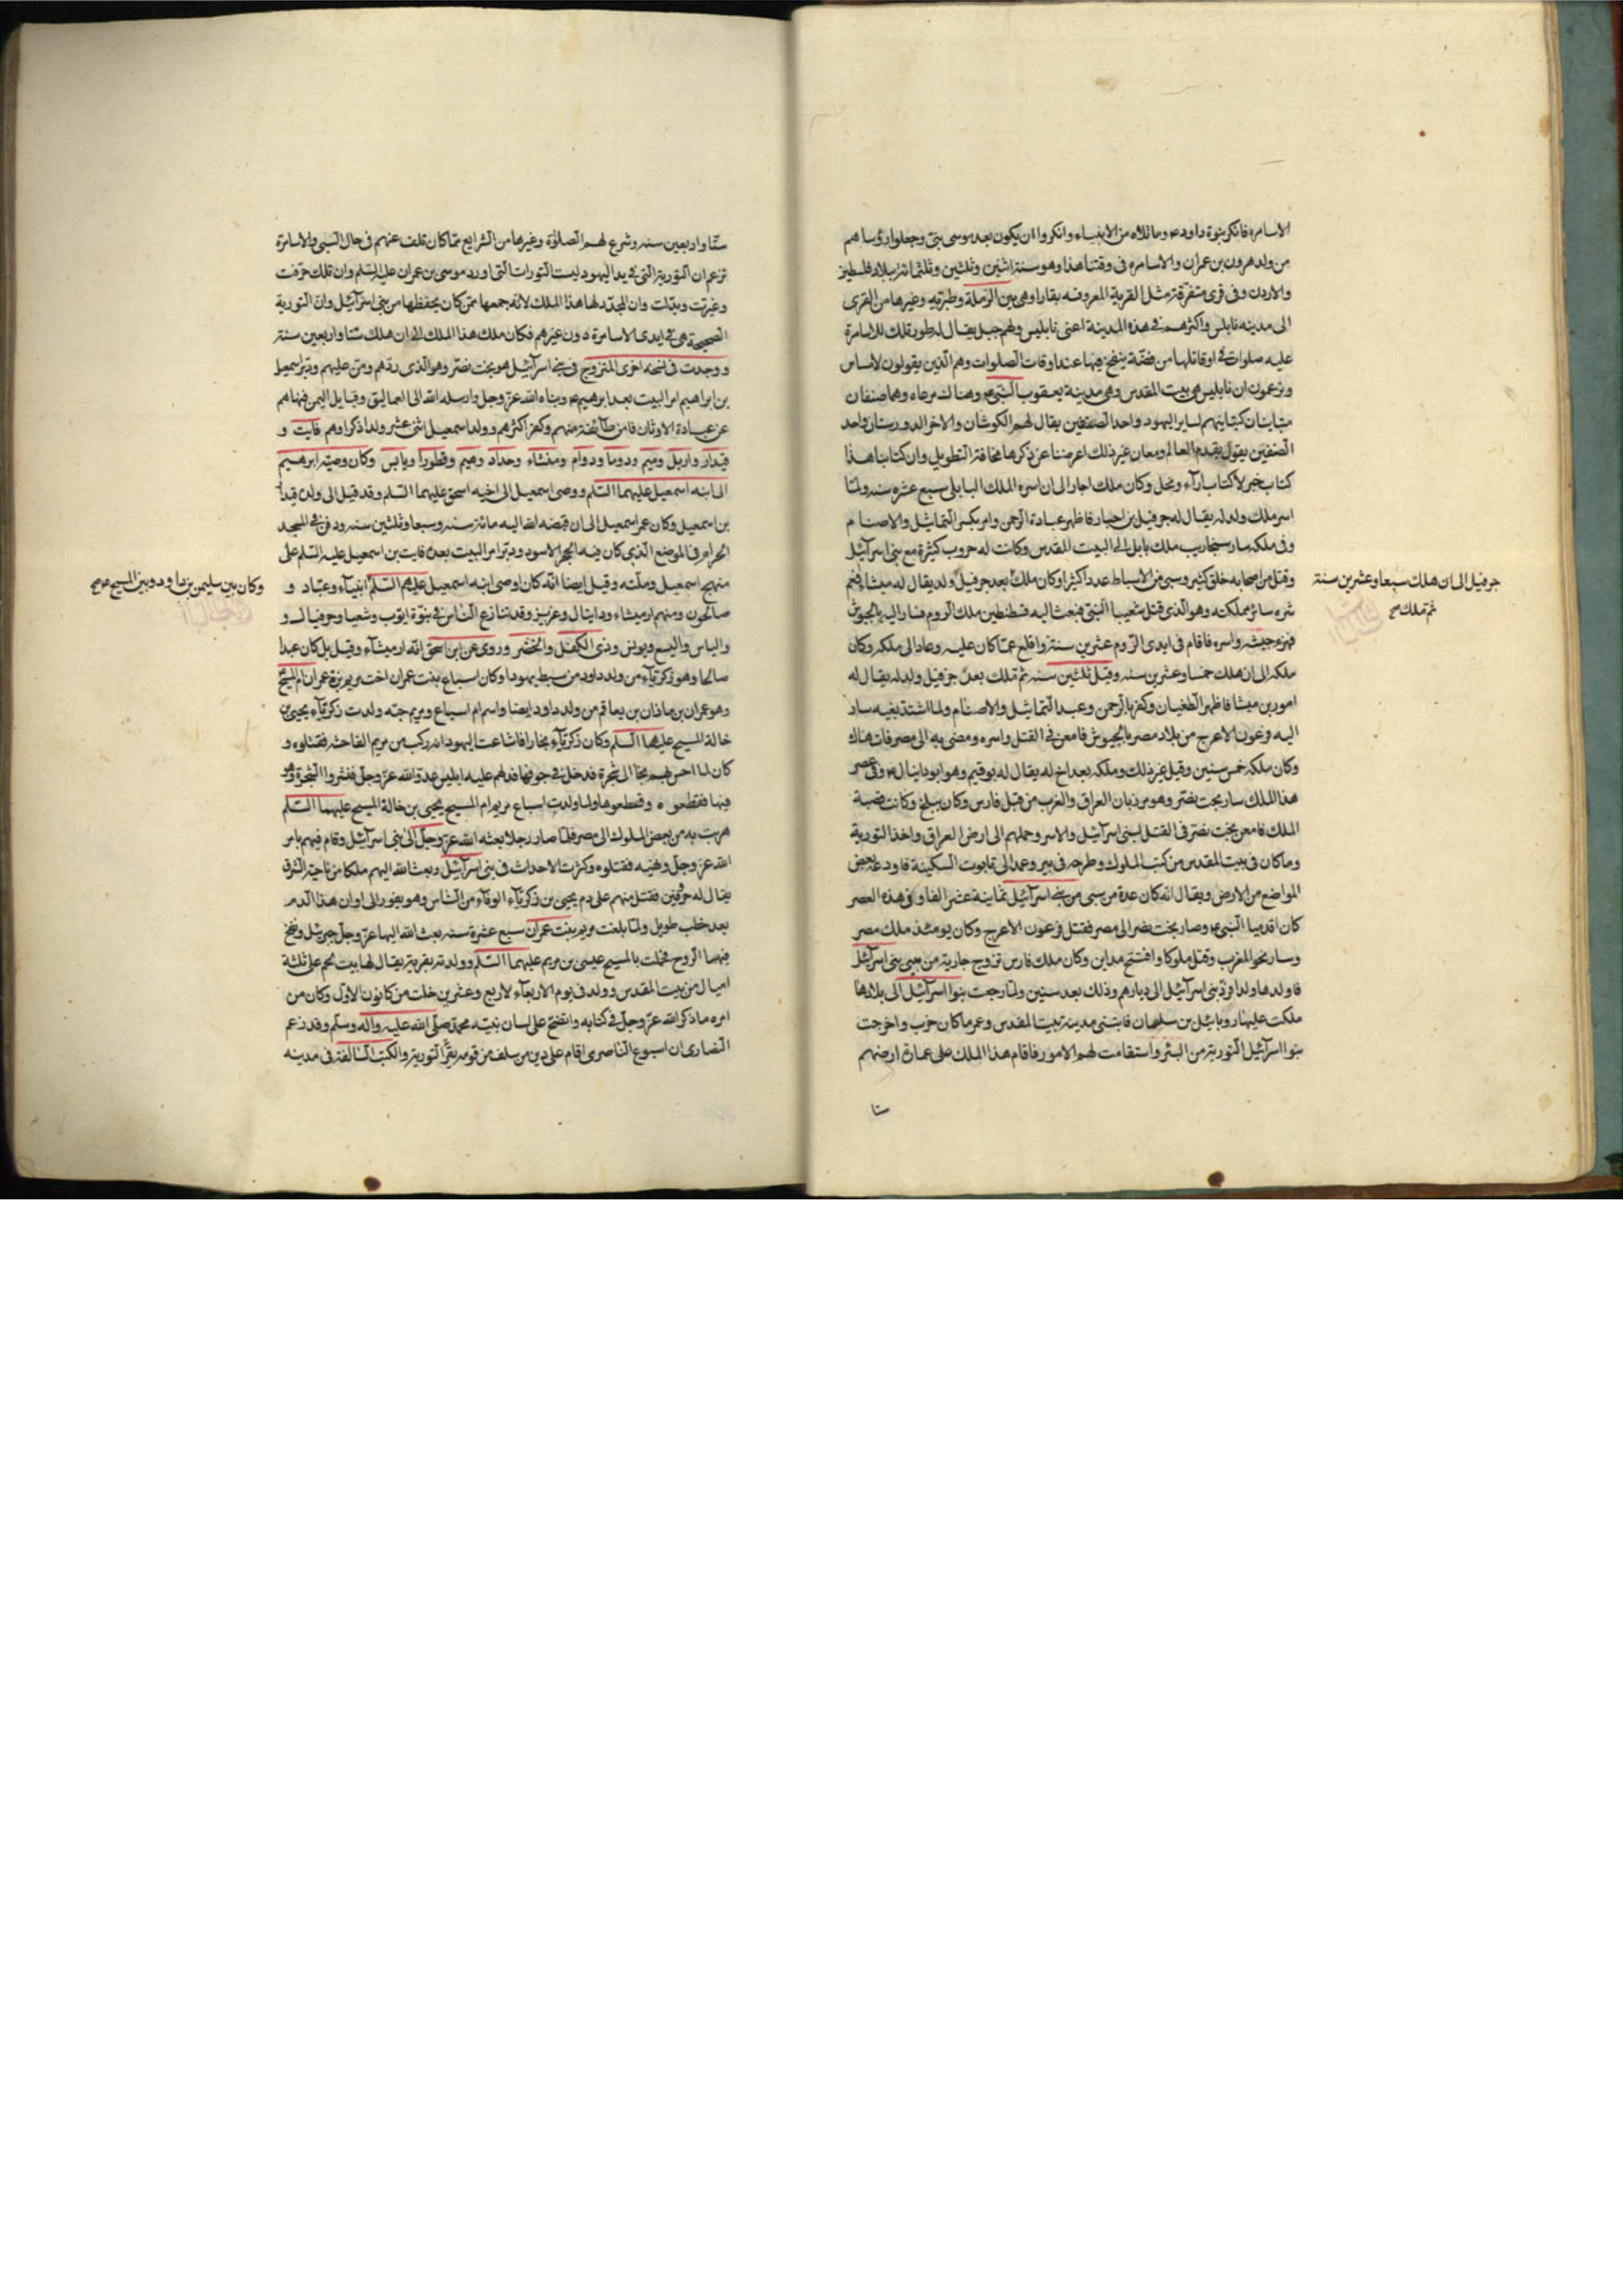 الاسامرة فانكر نبوة داود ع وما تلاه من الانبياء وانكروا ان يكون بعد موسى نبى وجعلوا رؤساهم
من ولد هرون بن عمران والاسامره فى وقتنا هذا وهو سنة اثنين وثلثين وثلثمائة ببلاد فلسطين
والاردن وفى قرى متفرقة مثل القرية المعروفه بقارا وهى بين الرملة وطبرية وغيرها من القرى
الى مدينه نابلس واكثرهم فى هذه المدينة اعنى نابليس ولهم جبل يقال له طور تلك للاسامرة
عليه صلوات فى اوقاتها من فضّة ينفخ فيها عند اوقات الصلوات وهم الذين يقولون لا ساس
ويزعمون ان نابليس هى بيت المقدس وهى مدينة يعقوب النبى ع وهناك مرعاه وهما صنفان
متباينان كتباينهم لساير اليهود واحد الصنفين يقال لهم الكوشان والاخر الدورستان واحد
الصنفين يقول بقدم العالم ومعان غير ذلك اعرضنا عن ذكرها مخافة التطويل وان كتابنا هذا
كتاب خبر لا كتاب آراء ونحل وكان ملك اجار الى ان اسره الملك البابلى سبع عشره سنه ولمّا
اسر ملك ولد له يقال له حرفيل بن احبار فاظهر عبادة الرحمن وامر بكسر التماثيل والاصنام
وفى ملكه سار سنجاريب ملك بابل الى البيت المقدس وكانت له حروب كثيرة مع بنى اسرآئيل
وقتل من اصحابه خلق كثير وسبى من الاسباط عددا كثيرا وكان ملك بعد حرفيل ولد يقال له ميشا فعمّ
حرفيل الى ان هلك سبعا وعشرين سنة
ثم ملك صح
شره سائر مملكته وهو الذى قتل شعيبا النبى فبعث اليه قسطنطين ملك الروم فسار اليه بالجيوش
فهزم جيشه واسره فاقام فى ايدى الروم عشرين سنة واقلع عمّا كان عليه وعاد الى ملكه وكان
ملكه الى ان هلك خمسا وعشرين سنه وقيل ثلثين سنه ثم ملك بعده حزفيل ولد له يقال له
امور بن ميشا فاظهر الطغيان وكفر بالرحمن وعبد التماثيل والاصنام ولما اشتد بغيه سار
اليه فرعون الاعرج من بلاد مصر بالجيوش فامعن فى القتل واسره ومضى به الى مصر فمات هناك
وكان ملكه خمس سنين وقيل غير ذلك وملكه بعد اخ له يقال له بوقيم وهو ابو دانيال ع وفى عصر
هذا الملك سار بخت نصّر وهو مرزبان العراق والعرب من قبل فارس وكان ببلخ وكانت قصبة
الملك فامعن بخت نصّر فى القتل لبنى اسرآئيل والاسر وحملهم الى ارض العراق واخذ التورية
وما كان فى بيت المقدس من كتب الملوك وطرحه فى بير وعمد الى تابوت السكينة فاودعه بعض
المواضع من الارض ويقال انه كان عدة من سبى من بنى اسرآئيل ثمانية عشر الفا وفى هذه العصر
كان اقدميا النبى ع وصار بخت نصر الى مصر فقتل فرعون الاعرج وكان يومئذ ملك مصر
وسار نحو المغرب وقتل ملوكا وافتتح مداين وكان ملك فارس تزوج جارية من سبى بنى اسرآئيل
فاولدها ولدا فردّ بنى اسرآئيل الى ديارهم وذلك بعد سنين ولمّا رجعت بنوا اسرآئيل الى بلادها
ملكت عليها زروبابئل بن سلهان فابتنى مدينة بيت المقدس وعمر ما كان خرب واخرجت
بنوا اسرآئيل التورية من البئر واستقامت لهم الامور فاقام هذا الملك على عمارة ارضهم
ستا
ستّا واربعين سنه وشرع لهم الصلوة وغيرها من الشرايع ممّا كان تلف عنهم فى حال السبى والاسامرة
تزعم ان التورية التى فى يد اليهود ليست التورات التى اورد موسى بن عمران عليه السّلم وان تلك حرّفت
وغيرت وبدّلت وان المجدّد لها هذا الملك لانه جمعها ممّن كان يحفظها من بنى اسرآئيل وانّ التورية
الصحيحة هى فى ايدى الاسامرة دون غيرهم فكان ملك هذا الملك الى ان هلك ستّا واربعين سنة
ووجدت فى نسخه اخرى المتزوج فى بنى اسرآئيل هو بخت نصّر وهو الذى ردّهم ومنّ عليهم ودبّر اسمعيل
بن ابراهيم امر البيت بعد ابرهيم ع ونبأه الله عزّ وجل وارسله الله الى العماليق وقبايل اليمن فنهاهم
عن عبادة الاوثان فامن طآئفة منهم وكفر اكثرهم وولد اسمعيل اثنى عشر ولدا ذكرا وهم فايت و
قيدار واربل وميم ودوما ودوام ومنشاء وحداد وهيم وقطورا وياىس وكان وصيّة ابرهيم
الى ابنه اسمعيل عليهما السّلم ووصى اسمعيل الى اخيه اسحق عليهما السّلم وقد قيل الى ولده قيدار
بن اسمعيل وكان عمر اسمعيل الى ان قبضه الله اليه مائة سنه وسبعا وثلثين سنه ودفن فى المسجد
الحرام فى الموضع الذى كان فيه الحجر الاسود ودبّر امر البيت بعده فايت بن اسمعيل عليه السّلم على
منهج اسمعيل وملّته وقيل ايضا انّه كان اوصى ابنه اسمعيل عليهم السّلم انبيآء وعبّاد و
وكان بين سليمن بن داود وبين المسيح ع صح
صالحون ومنهم ارميشاء ودانيال وعزيز وقد تنازع الناس فى نبوّة ايّوب وشعيا وحرفيال و
والياس واليسع ويونس وذى الكفل والخضر وروى عن ابن اسحق انّه ارميشآء وقيل بل كان عبدا
صالحا وهو زكريّآء من ولد داود من سبط يهودا وكان اسباع بنت عمران اخت مريم بنت عمران ام المسيح
وهو عمران بن ماذان بن يعاقم من ولد داود ايضا واسم ام اسباع ومريم حنّه ولدت زكريّآء يحيى بن
خالة المسيح عليهما السّلم وكان زكريّآء نجّارا فاشاعت اليهود انه ركب من مريم الفاحشه فقتلوه و
كان لما احسّ بهم لجا الى شجرة فدخل فى جوفها فدلهم عليه ابليس عدوّ الله عزّ وجلّ فنشروا الشجرة وهو
فيها فقطعوه وقطعوها ولما ولدت اسباع مريم ام المسيح يحيى بن خالة المسيح عليهما السّلم
هربت به من بعض الملوك الى مصر فلمّا صار رجلا بعثه الله عزّ وجلّ الى بنى اسرآئيل وقام فيهم بامر
الله عزّ وجلّ ونهيه فقتلوه وكثرت الاحداث فى بنى اسرآئيل وبعث الله اليهم ملكا من ناحية الشرق
يقال له حرقين فقتل منهم على دم يحيى بن زكريّآء الوفا من الناس وهو يفور الى اوان هذا الدم
بعد خطب طويل ولمّا بلغت مريم بنت عمران سبع عشرة سنه بعث الله اليها عزّ وجلّ جبرئيل ونفخ
فيها الروح فحملت بالمسيح عيسى بن مريم عليهما السّلم وولدته بقرية يقال لها بيت لحم على ثلثة
اميال من بيت المقدس وولد فى يوم الاربعآء لاربع وعشرين خلت من كانون الاوّل وكان من
امره ما ذكر الله عزّ وجلّ فى كتابه واتضح على لسان نبيّه محمّد صلّى الله عليه وآله وسلّم وقد زعم
النصارى ان اسبوع الناصرى اقام على دين من سلف من قومه يقرأ التورية والكتب السّالفة فى مدينه